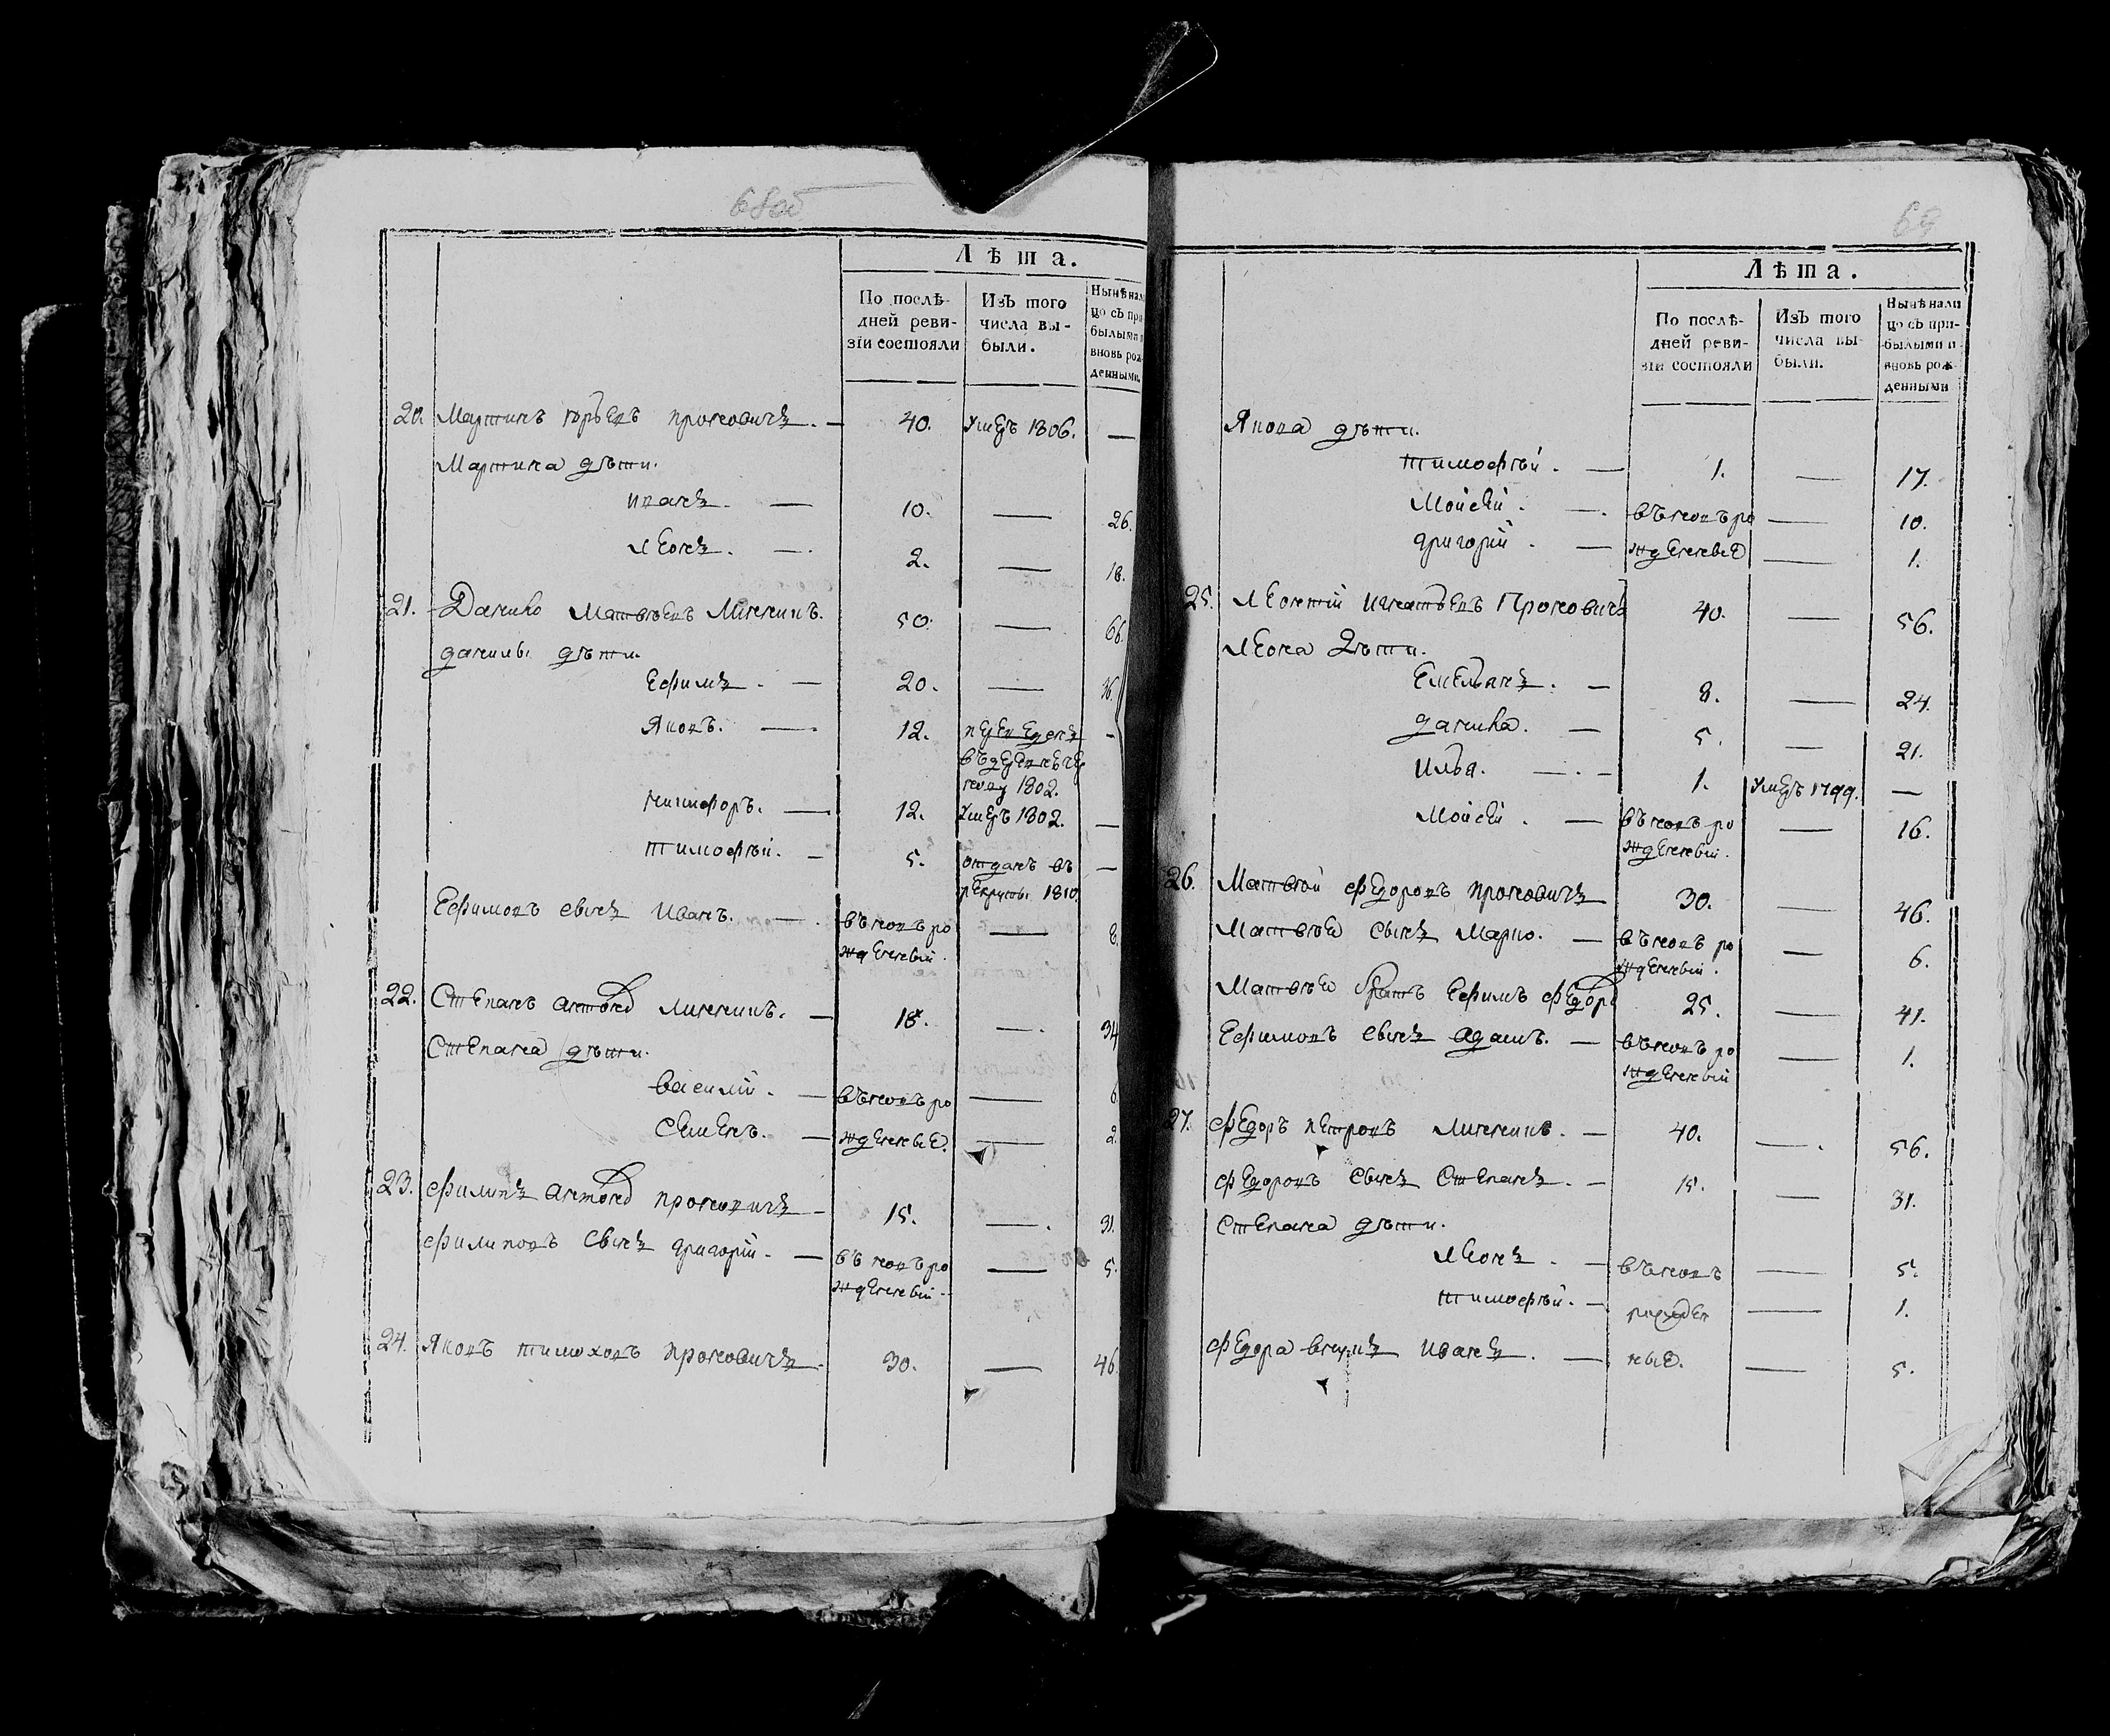 68об
Лѣта.
По послѣ-
дней реви-
зіи состояли
Изъ того
числа вы-
были.
Нынѣ нали
цо съ при-
былыми и
вновь рож-
денными.
20. Мартинъ юрьевъ проновичъ. — 40. умеръ 1806. —
Мартина дѣти.
иванъ. — 10. — 26.
леонъ. — 2. — 18.
21. Данило Матвѣевъ Минкинъ. 50. — 66.
данилы дѣти.
Ефимъ. — 20. — 36.
Яковъ. — 12. переведенъ —
въ деревню
1802.
никифоръ. — 12. умеръ 1802. —
тимофѣй. — 5. отданъ въ —
рекруты 1810.
Ефимовъ сынъ иванъ. — въновъ ро — 8.
жденный.
22. Степанъ антонов минкинъ. — 18. — 34
Степана дѣти.
василій. — въновъ ро — 6.
семенъ. — жденные. — 2.
23. филипъ антонов проновичъ — 15. — 31.
филиповъ сынъ григорій. — въ новъ ро — 5.
жденный.
24. Яковъ тимоховъ проновичъ. 30. — 46
69
Лѣта.
По послѣ-
дней реви-
зіи состояли
Изъ того
числа вы-
были.
Нынѣ нали
цо съ при-
былыми и
вновь рож-
денными
Якова дѣти.
тимофѣй. — 1. — 17.
Мойсей. — въновъ ро — 10.
григорій. — жденные — 1.
25. леонтій игнатьевъ Проновичъ 40. — 56.
леона дѣти.
Емельянъ. — 8. — 24.
данила. — 5. — 21.
илья. — 1. умеръ 1799. —
Мойсей. — въновъ ро — 16.
жденный.
26. Матвѣй федоровъ проновичъ 30. — 46.
Матвѣев сынъ марко. — въновъ ро — 6.
жденный.
Матвѣев братъ Ефимъ федоро 25. — 41.
Ефимовъ сынъ адамъ. — въновъ ро — 1.
жденный
27. федоръ петровъ минкинъ. — 40. — 56.
федоровъ сынъ Степанъ. — 15. — 31.
Степана дѣти.
леонъ. — въновъ — 5.
тимофѣй. — рожден — 1.
федора внукъ иванъ. — ные. — 5.